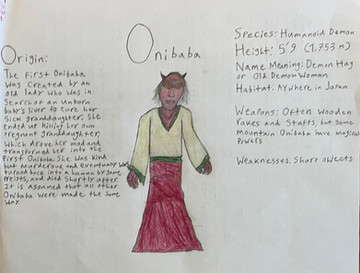 Onibaba
Origin:
The first Onibaba
was created by an
old lady who was in
Search of an Unborn
baby's liver to cure her
Sick granddaughter. She
ended up killing her own
pregnant Granddaughter,
which drove her mad and
transformed her into the
first Onibaba. She was kind
but murderous, and eventually was
turned back into a human by some
Priests, and died Shortly after.
It is assumed that all other
Onibaba were made the same
way.
Species: Humanoid Demon
Height: 5'9 (1.753 m)
Name Meaning: Demon Hag
or Old Demon Woman
Habitat: Anywhere in Japan
Weapons: Often Wooden
and Staffs, but Some
mountain Onibaba have magical
Powers
Weaknesses: Sharp objects